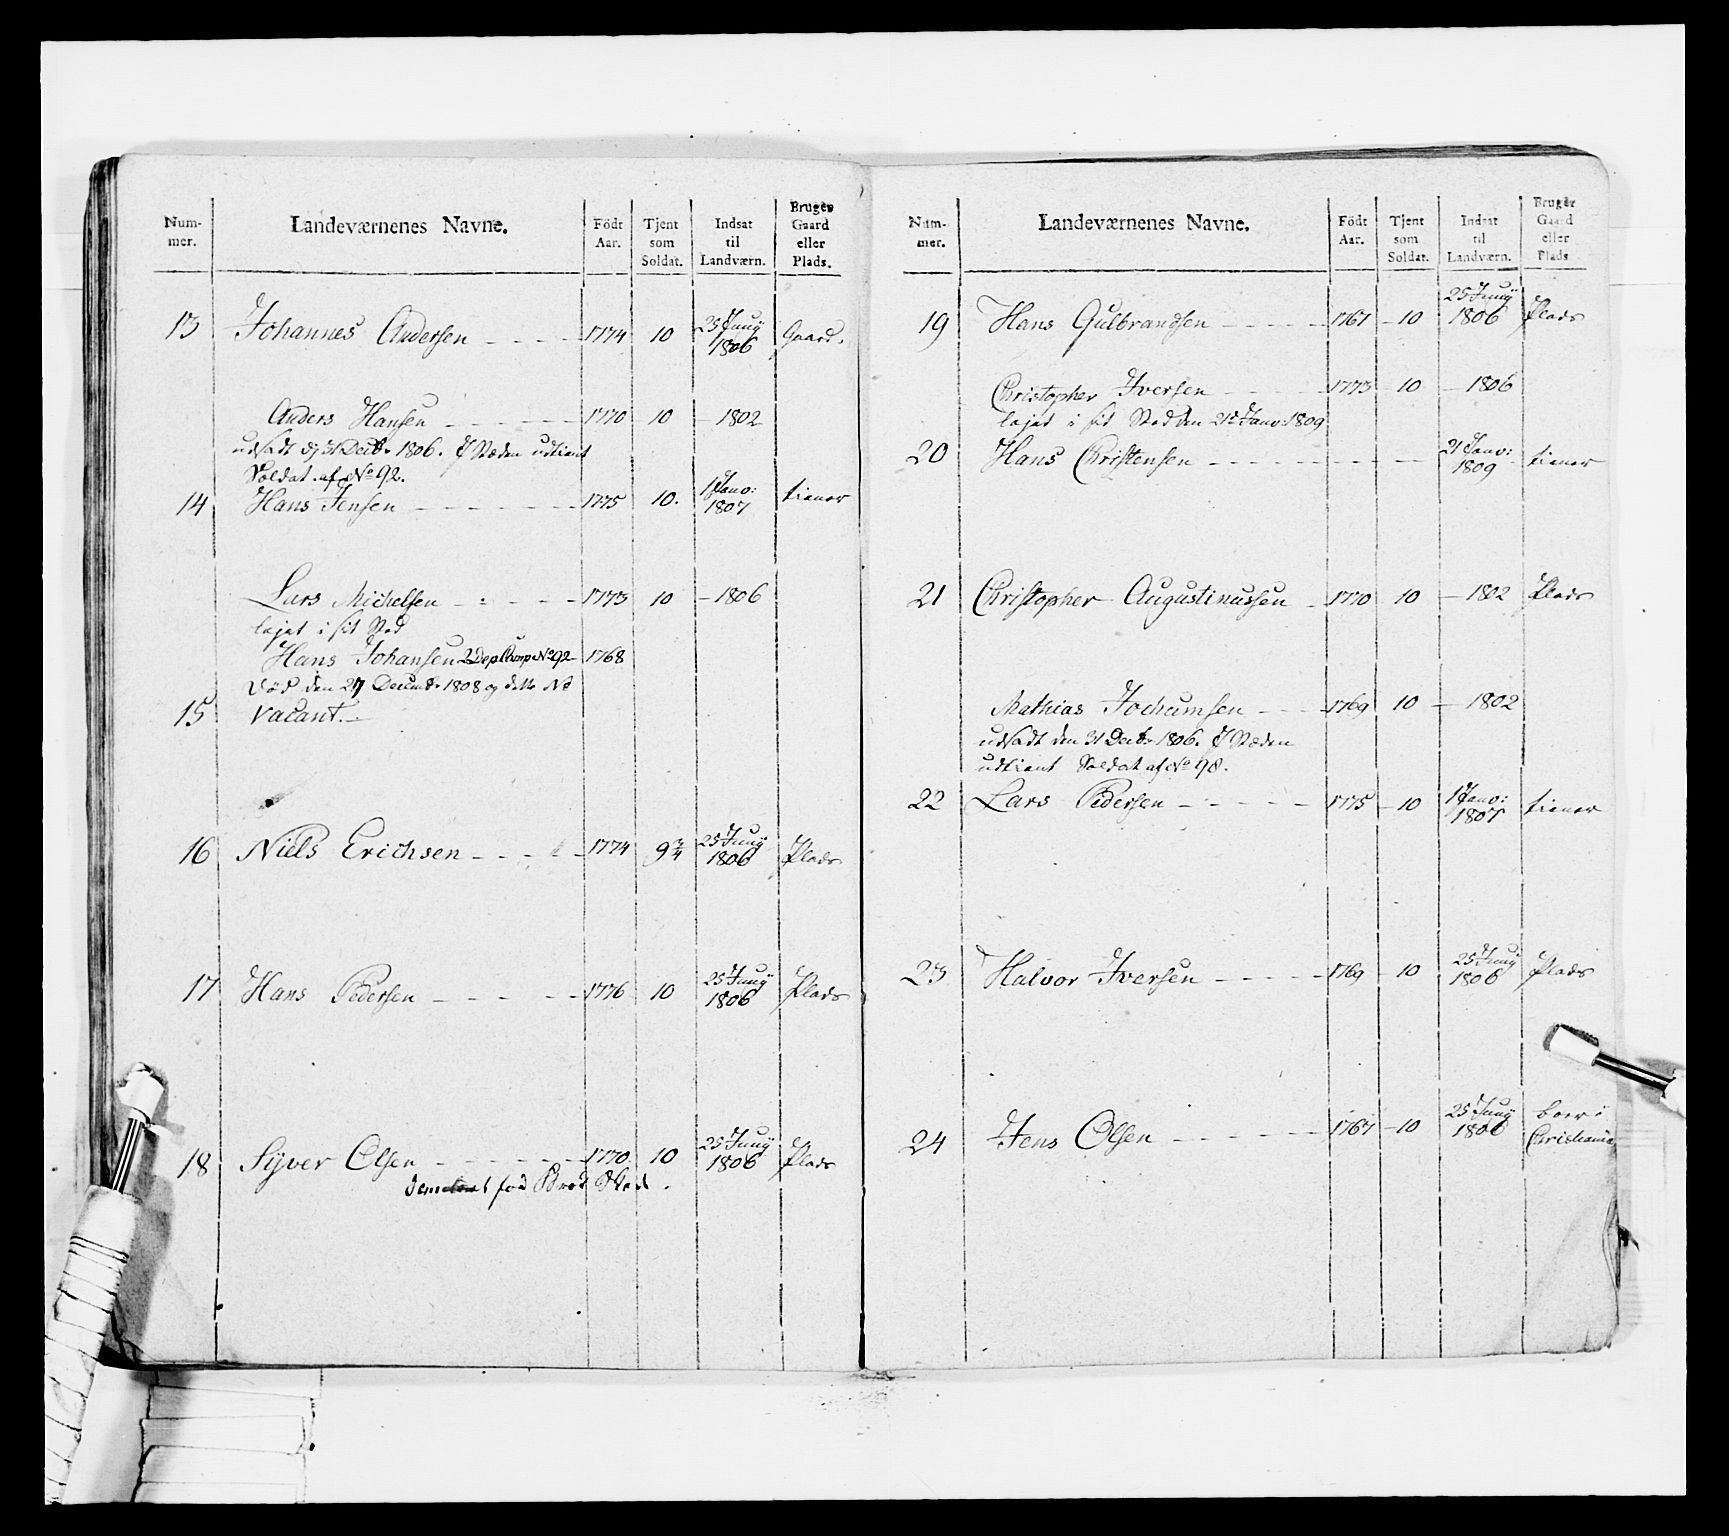 Num-
mer.
Landeværnenes Navne.
Födt
Aar.
Tjent
som
Soldat.
Indsat
til
Landværn.
Bruger
Gaard
eller
Plads.
13 Johannes Andersen - - - - 1774 10 25 Juny 1806 Gaard.
Anders Hansen - - - - - 1770 10 - 1802
udsadt d. 31 Decbr 1806. I Stæden udtient
Soldat af No 92.
14 Hans Jensen - - - - - 1775 10. 1 Janv: 1807 tiener
Lars Michelsen - - - - 1773 10 - 1806
lejet i sit Sted
Hans Johansen 2 Dep Comp No 92 - 1768
Död den 27 Decembr 1808 og dette No
15 Vacant. -
16 Niels Erichsen - - - - 1774 9 3/4 25 Juny 1806 Plads
17 Hans Pedersen - - - - 1776 10 25 Juny 1806 Plads
18 Syver Olsen - - - - - 1770 10 25 Juny 1806 Plads
Num-
mer.
Landeværnenes Navne.
Födt
Aar.
Tjent
som
Soldat.
Indsat
til
Landværn.
Bruger
Gaard
eller
Plads
19 Hans Gulbrandsen - - - - 1767 - 10 25 Juny 1806 Plads
Christopher Iversen - - - 1773 - 10 - 1806
lejet i sit Sted den 21de Janv: 1809
20 Hans Christensen - - - - - - - 21 Janv: 1809 - tiener
21 Christopher Augustinussen - 1770 10 - 1802 Plads
Mathias Jochumsen - - - 1769 10 - 1802
udsadt den 31 Decbr 1806. I Stæden
udtient Soldat af No 98.
22 Lars Pedersen - - - - 1775 - 10 1 Janv: 1807 tiener
23 Halvor Iversen - - - - 1769 - 10 25 Juny 1806 Plads
24 Jens Olsen - - - - - 1767 - 10 25 Juny 1806 boer i Christiania